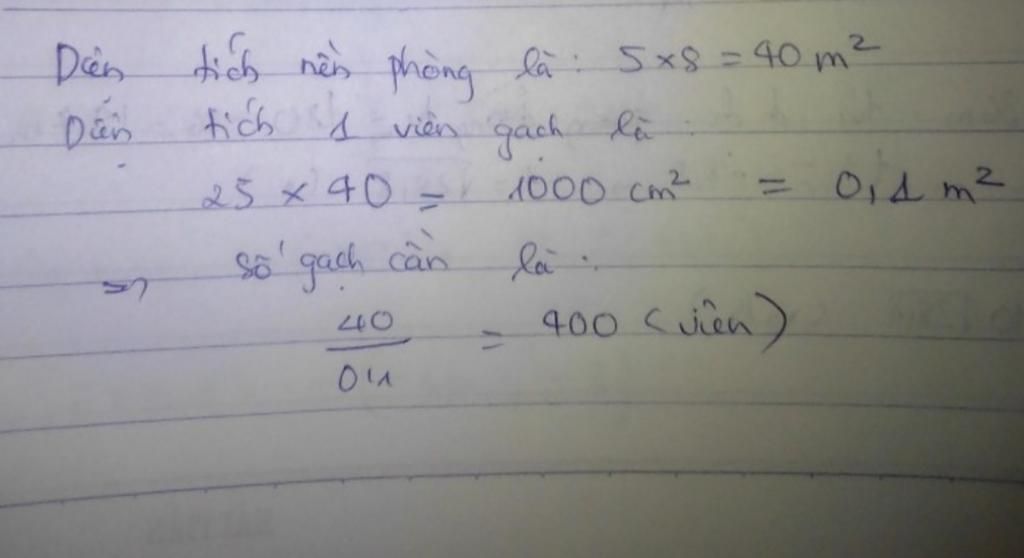 Diện tích nền phòng là: 5 x 8 = 40 m²
Diện tích 1 viên gạch là:
25 x 40 = 1000 cm² = 0,1 m²
=> số gạch cần là:
40 / 0,1 = 400 (viên)